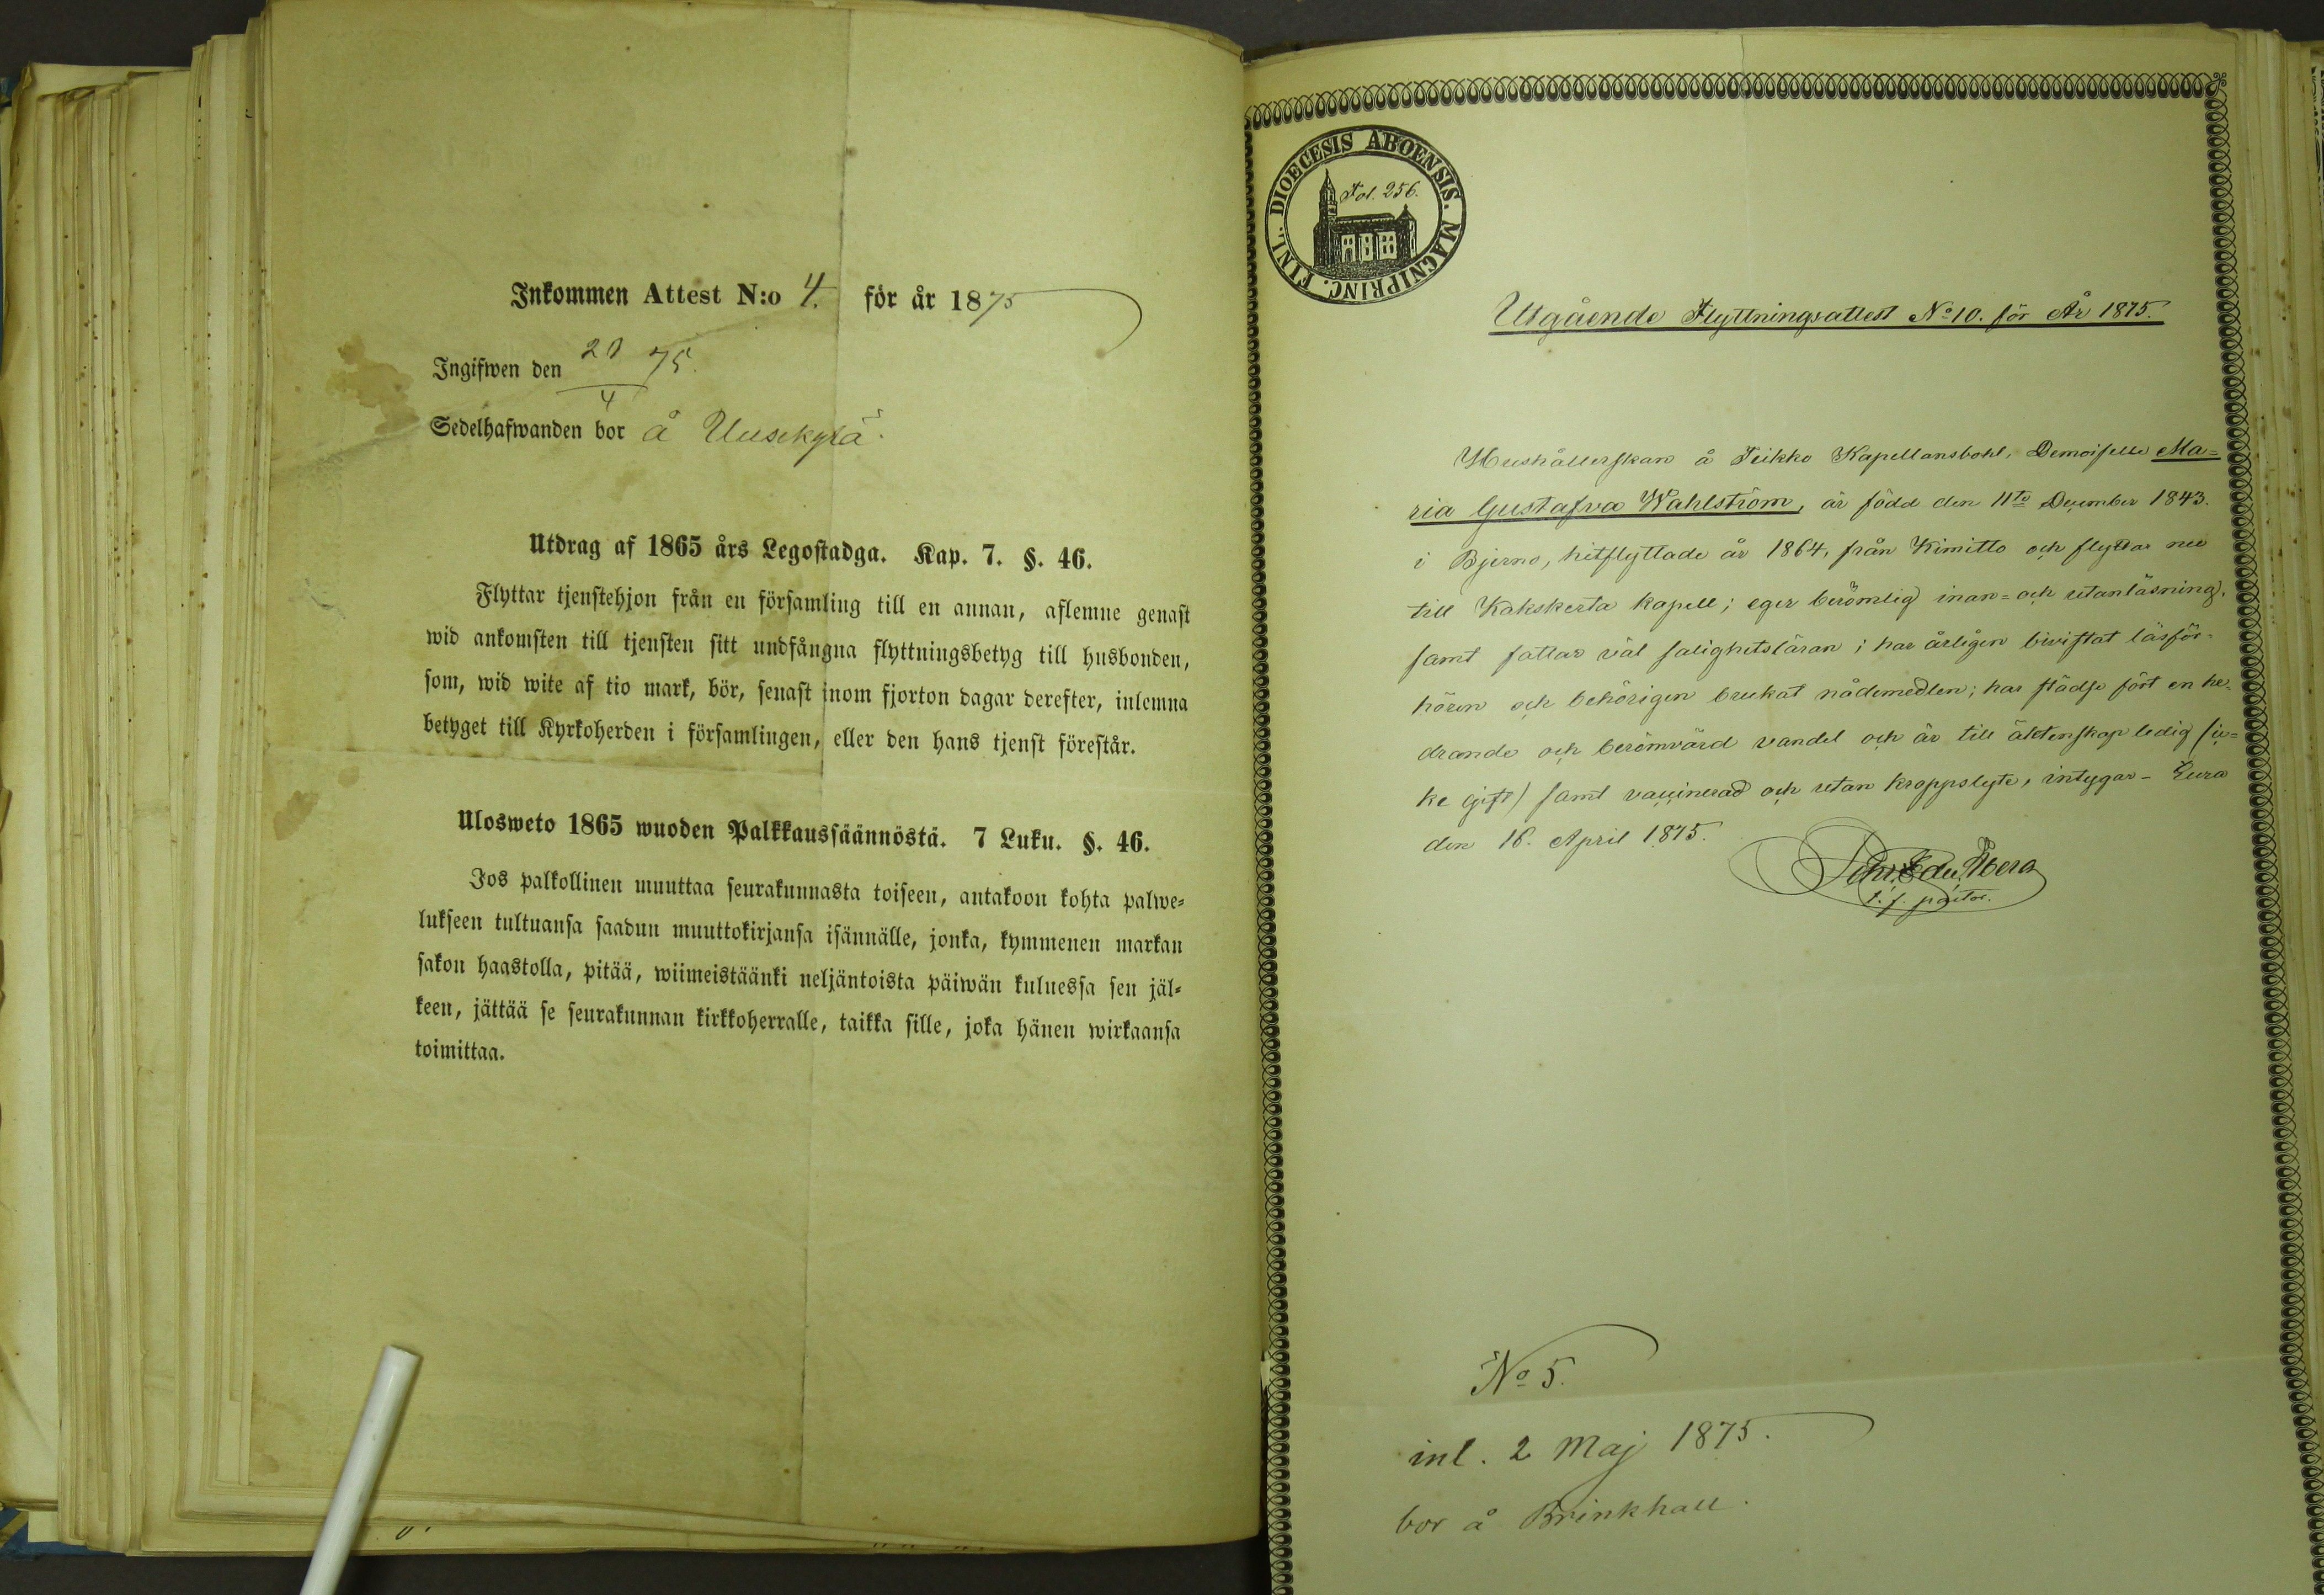 Inkommen Attest N:o 4. för år 1875
Ingifwen den 20/4 75.
Sedelhafwanden bor å Uusekylä.
Utdrag af 1865 års Legostadga. Kap. 7. §. 46.
Flyttar tjenstehjon från en församling till en annan, aflemne genast
wid ankomsten till tjensten sitt undfångna flyttningsbetyg till husbonden,
som, wid wite af tio mark, bör, senast inom fjorton dagar derefter, inlemna
betyget till Kyrkoherden i församlingen, eller den hans tjenst förestår.
Ulosweto 1865 wuoden Palkkaussäännöstä. 7 Luku. §. 46.
Jos palkollinen muuttaa seurakunnasta toiseen, antakoon kohta palwe=
lukseen tultuansa saadun muuttokirjansa isännälle, jonka, kymmenen markan
sakon haastolla, pitää, wiimeistäänki neljäntoista päiwän kuluessa sen jäl=
keen, jättää se seurakunnan kirkkoherralle, taikka sille, joka hänen wirkaansa
toimittaa.
FINL. DIOECESIS ABOENSIS. MAGNIPRINC.
Fol. 256.
Utgående Flyttningsattest No 10. för År 1875.
Hushållerskan å Teikko Kapellansbohl, Demoiselle Ma=
ria Gustafva Wahlström, är född den 11te December 1843.
i Bjerno, hitflyttade år 1864, från Kimitto och flyttar nu
till Kakskerta kapell; eger berömlig inan= och utanläsning,
samt fattar väl salighetsläran; har årligen bivistat läsför=
hören och behörigen brukat nådemedlen; har städse fört en he=
drande och berömvärd vandel och är till äktenskap ledig (ic=
ke gift) samt vaccinerad och utan kroppslyte, intygar – Eura
den 16. April 1875.
t. f. pastor.
No 5.
inl. 2 Maj 1875.
bor å Brinkhall.